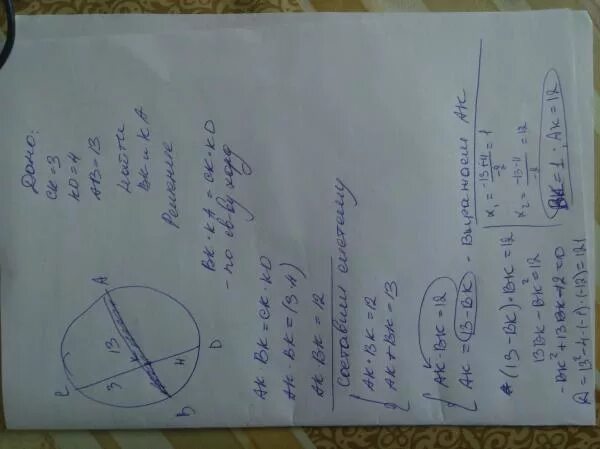 Дано:
CK=3
KD=4
AB=13
Найти
BK и KA
Решение
C
A
3
13
4
B
D
BK·KA=CK·KD
- по св-ву хорд
AK·BK=CK·KD
AK·BK=(3·4)
AK·BK=12
Составим систему
{ AK·BK=12
AK+BK=13
{ AK·BK=12
AK=13-BK - Выражаем AK
(13-BK)·BK=12
13BK-BK²=12
-BK²+13BK-12=0
D=13²-4·(-1)·(-12)=121
x₁=-13+11/-2=1
x₂=-13-11/-2=12
BK=1, AK=12